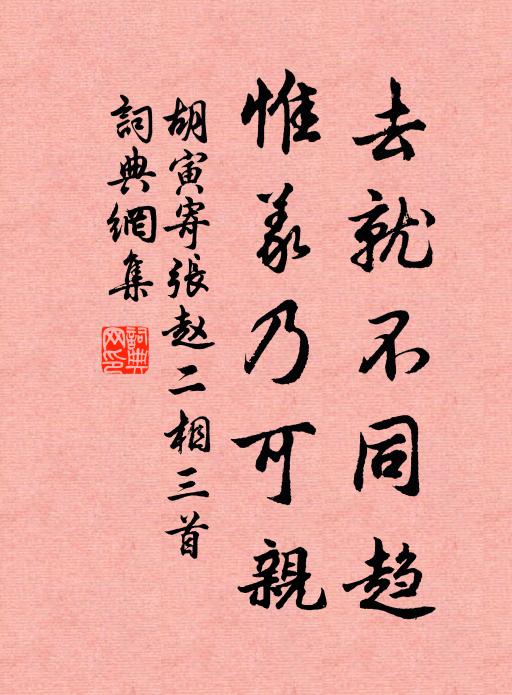 去就不同趋
惟义乃可親
胡寅寄張赵二相三首
詞典網集
詞典网印